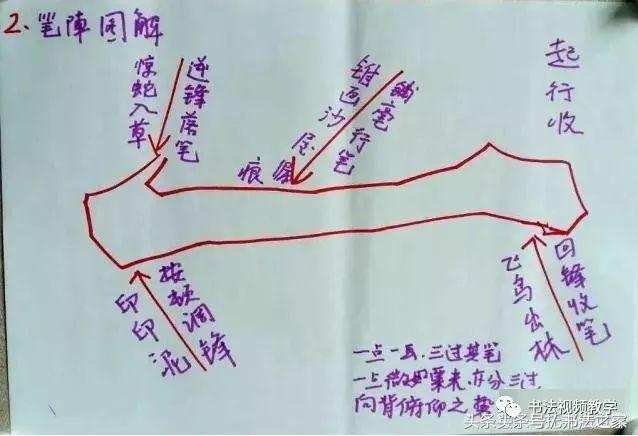 2.笔陣图解
逆锋落笔
惊蛇入草
铺毫行笔
画沙
屋
痕
起行收
按顿调锋
印印泥
回锋收笔
飞鸟出林
一点一画.三过其笔
一点微如粟米.亦分三过
向背俯仰之
书法视频教学
头条号/书法之家